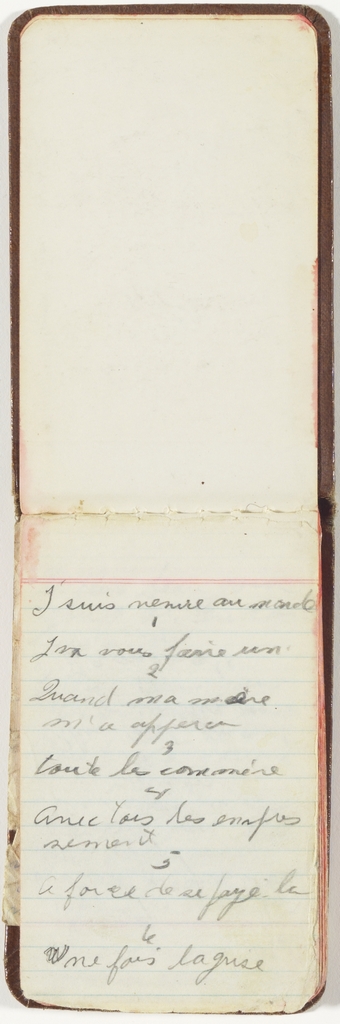 J suis venue au monde
1
J va vous faire un
2
Quand ma mère
m'a apperçu
3
toute les commère
4
Avec tois les empres
sement
5
A force de se payé la
6
Une fois laguse